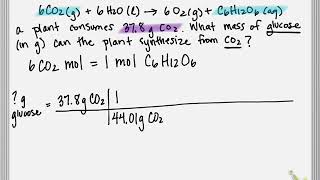 6CO₂(g) + 6H₂O(l) → 6O₂(g) + C₆H₁₂O₆(aq)
a plant consumes 37.8 g CO₂. What mass of glucose
(in g) can the plant synthesize from CO₂?
6 CO₂ mol = 1 mol C₆H₁₂O₆
? g glucose = 37.8 g CO₂ | 1
44.01 g CO₂